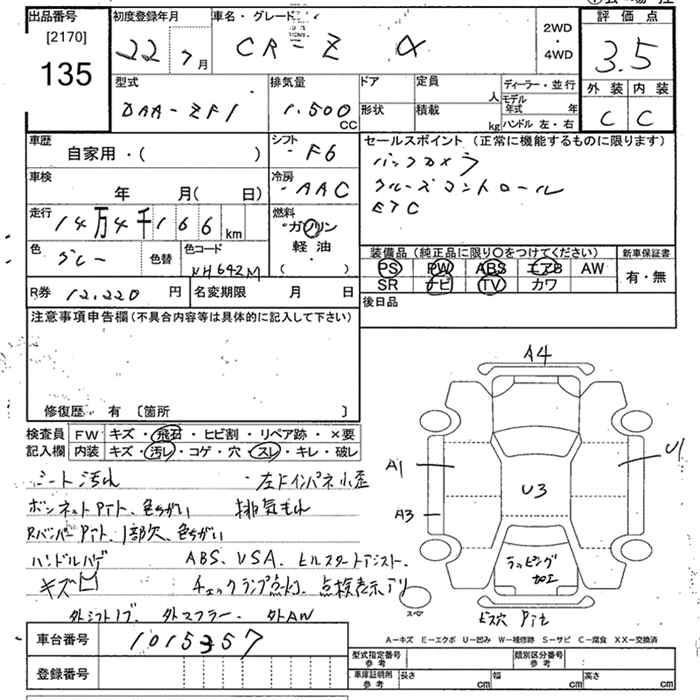 出品番号
[2170]
135
初度登録年月
22 7月
車名・グレード
CR-Z α
2WD
・
4WD
評価点
3.5
外装 内装
C C
型式
DAA-ZF1
排気量
1,500
CC
ドア 定員
人
形状 積載
kg
ディーラー・並行
モデル年式 年
ハンドル 左・右
車歴
自家用・( )
シフト
F6
車検
年 月( 日)
冷房
AAC
走行
14万4千166 km
燃料
ガソリン
軽油・
( )
色
グレー
色替
色コード
NH642M
R券 12,220 円
名変期限 月 日
セールスポイント (正常に機能するものに限ります)
バックカメラ
クルーズコントロール
ETC
装備品(純正品に限り〇をつけてください) 新車保証書
PS PW ABS エアB AW
SR ナビ TV カワ
有・無
後日品
注意事項申告欄(不具合内容等は具体的に記入して下さい)
修復歴 有 〔箇所 〕
検査員 FW キズ・飛石・ヒビ割・リペア跡・×要
記入欄 内装 汚レ・コゲ・穴・スレ・キレ・破レ
シート汚れ 左ドインパネ小歪
ボンネットPイト、色ちがい 排気もれ
RバンパーPイト、1部欠、色ちがい
ハンドルハゲ ABS、VSA、ヒルスタートアシスト、
キズ凹 チェックランプ点灯、点検表示アリ
外シフトノブ、外マフラー、外AW
A4
A1
U1
A3
U3
ラッピング
加工
スペア
ビス穴 Pイト
A-キズ E-エクボ U-凹み W-補修跡 S-サビ C-腐食 XX-交換済
車台番号 1015357
登録番号
型式指定番号
参考
類別区分番号
参考
車庫証明用
参考
長さ cm 幅 cm 高さ cm